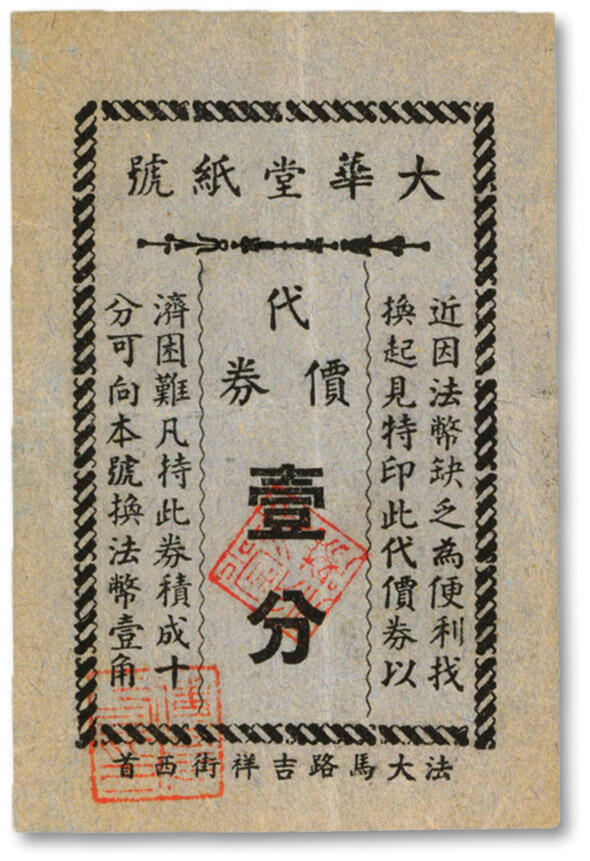 大華堂紙號
近因法幣缺乏為便利找
換起見特印此代價券以
代
價券
壹分
濟困難凡持此券積成十
分可向本號換法幣壹角
法大馬路吉祥街西首